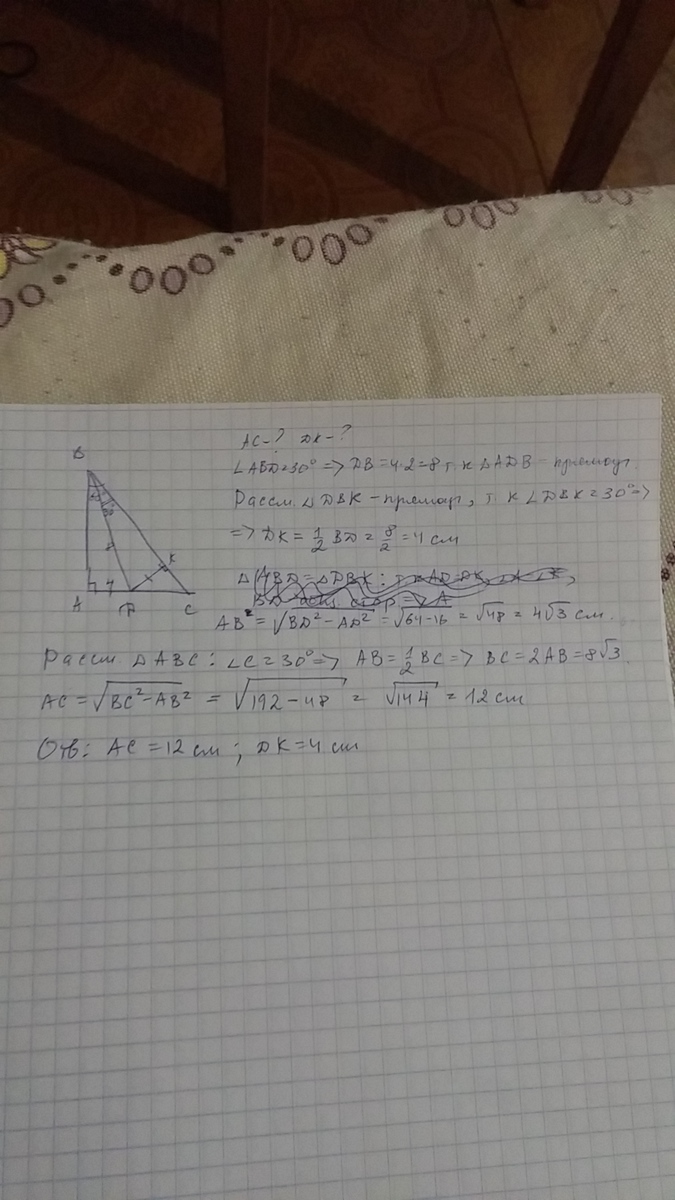 AC-? DK-?
∠ABD=30° => DB=4·2=8 т.к △ADB - прямоуг.
Рассм. △DBK - прямоуг, т.к ∠DBK=30° =>
=> DK = 1/2 BD = 8/2 = 4 см
AB² = √BD² - AD² = √64-16 = √48 = 4√3 см.
Рассм. △ABC: ∠C=30° => AB = 1/2 BC => BC=2AB=8√3.
AC = √BC²-AB² = √192-48 = √144 = 12 см
Отв: AC=12 см; DK=4 см
B
K
A
4
D
C